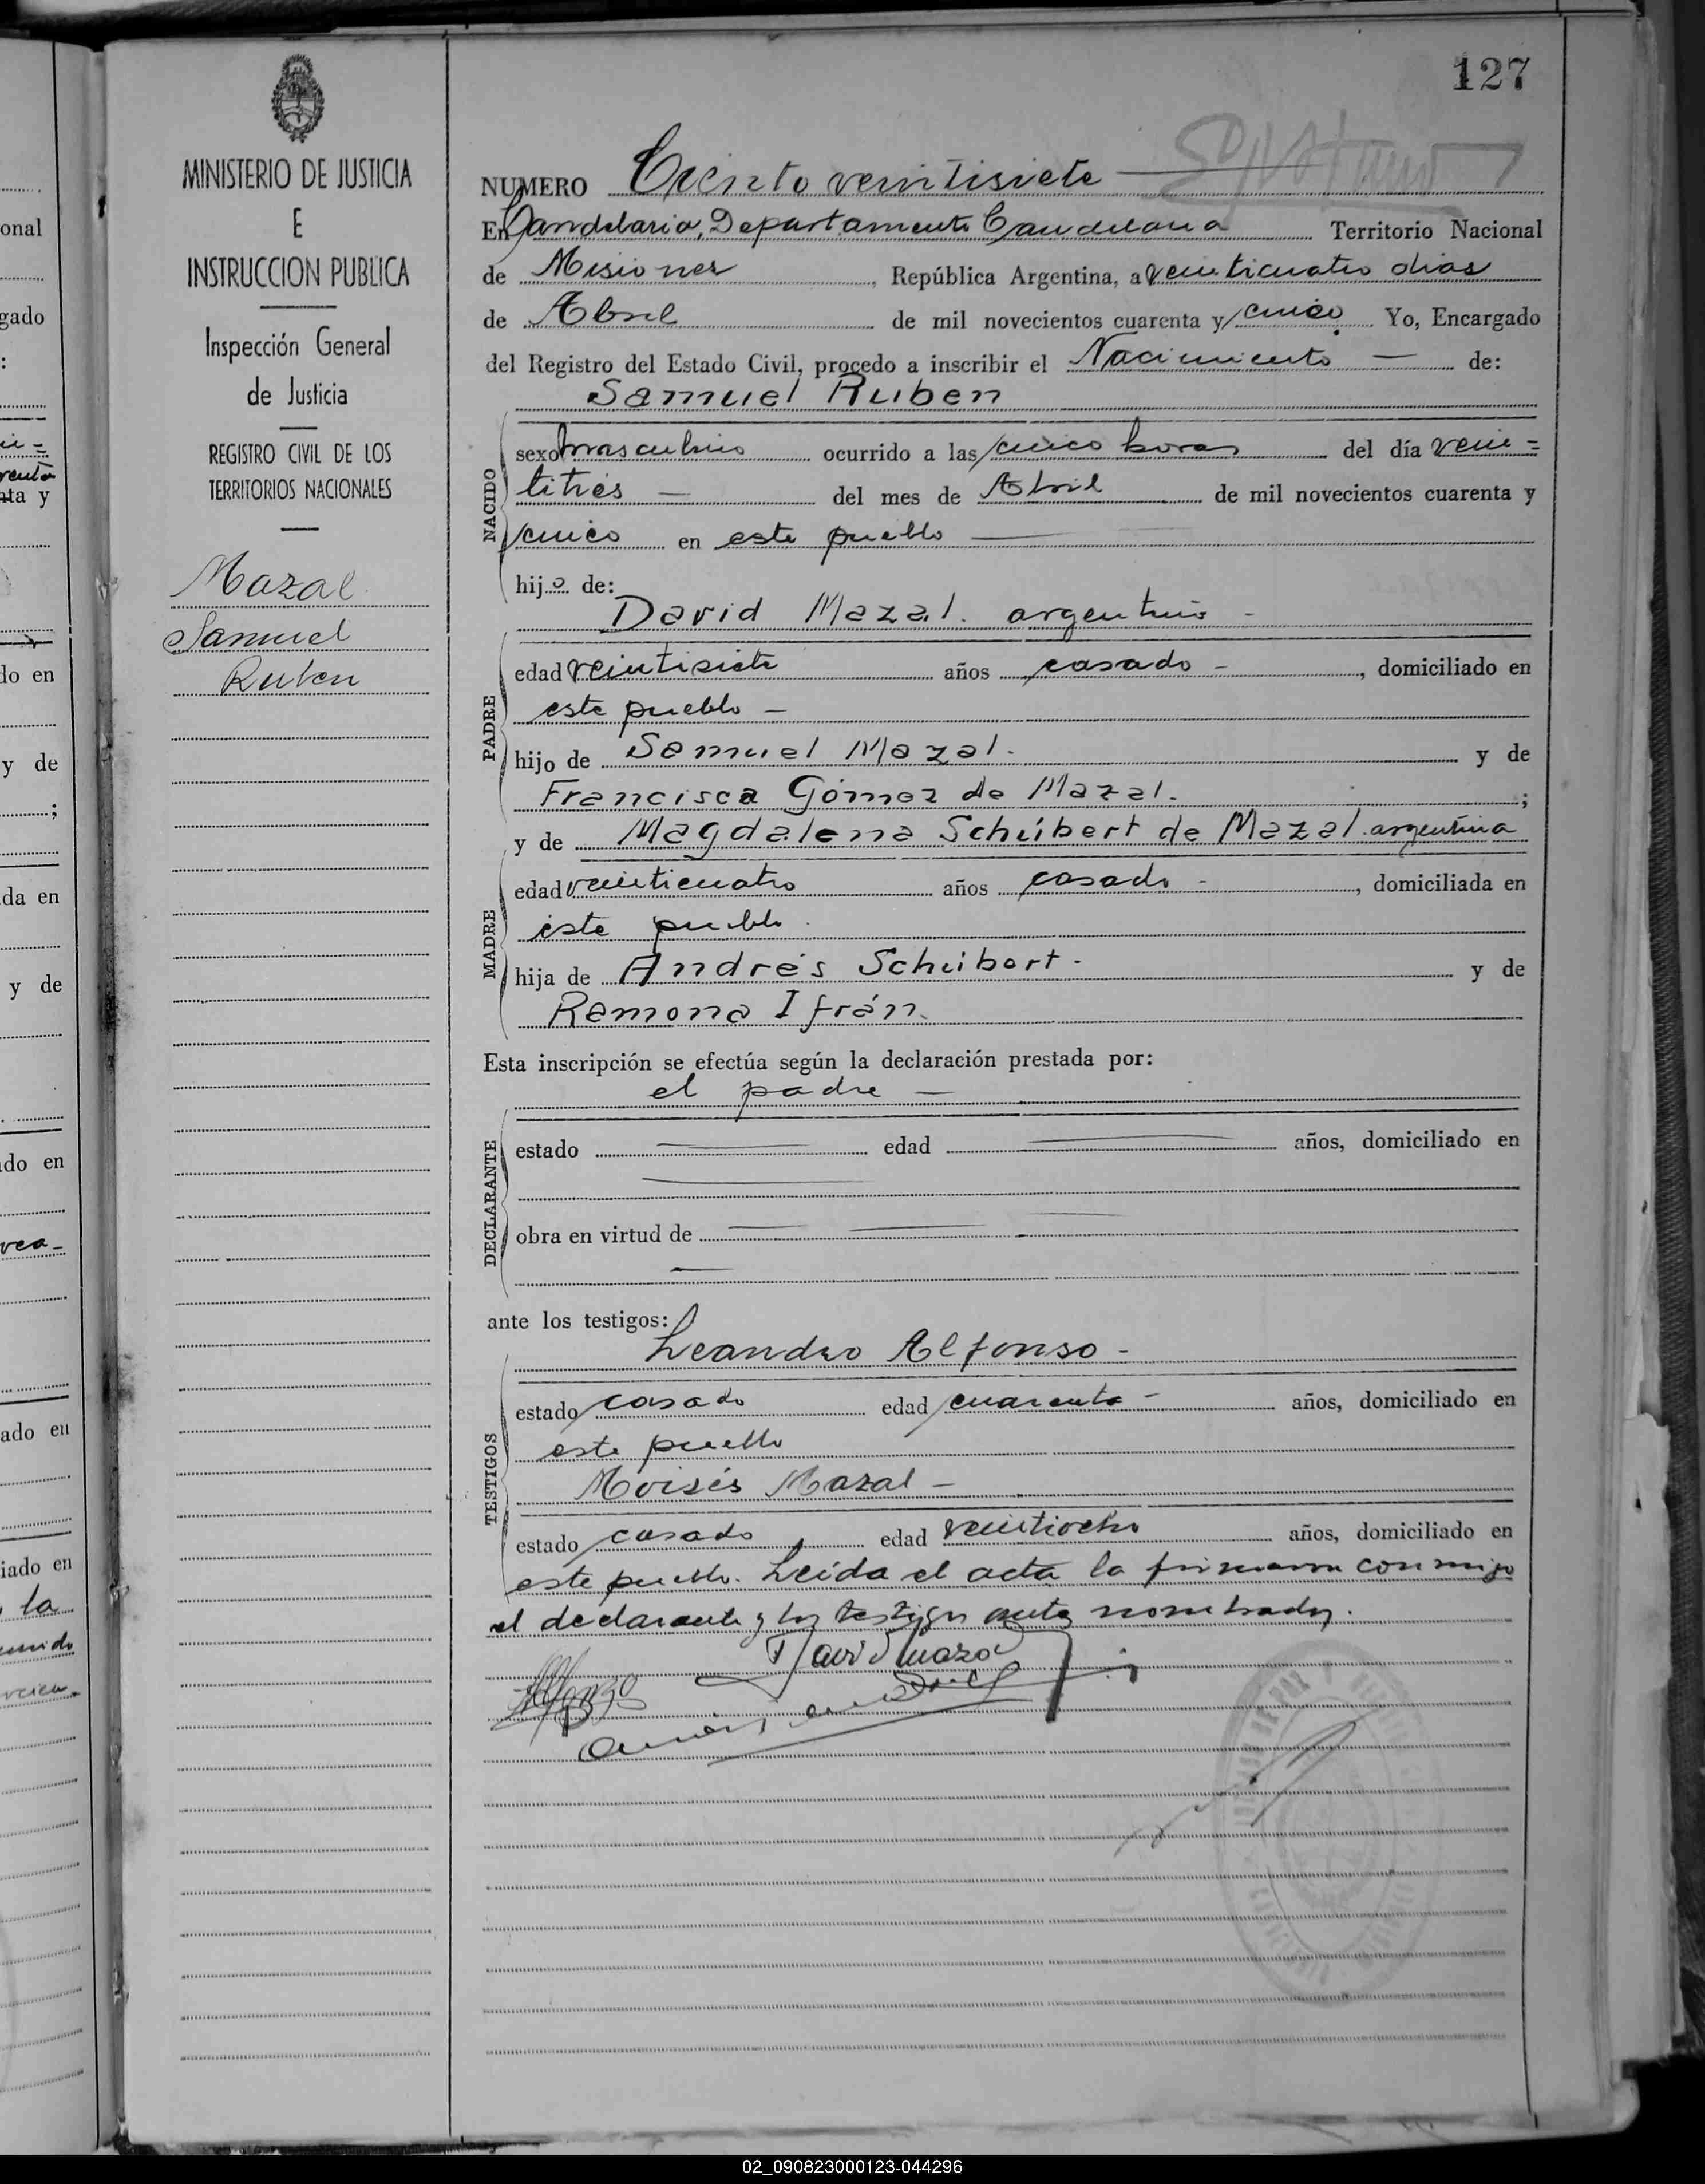 127
MINISTERIO DE JUSTICIA
E
INSTRUCCION PUBLICA
Inspección General
de Justicia
REGISTRO CIVIL DE LOS
TERRITORIOS NACIONALES
Mazal
Samuel
Ruben
NUMERO Ciento veintisiete
En Candelaria, Departamento Candelaria Territorio Nacional
de Misiones, República Argentina, a veinticuatro dias
de Abril de mil novecientos cuarenta y cinco Yo, Encargado
del Registro del Estado Civil, procedo a inscribir el Nacimiento — de:
Samuel Ruben
NACIDO
sexo masculino ocurrido a las cinco horas del día vein=
titrés — del mes de Abril de mil novecientos cuarenta y
cinco en este pueblo —
hijo de:
David Mazal. argentino -
PADRE
edad veintisiete años casado -, domiciliado en
este pueblo -
hijo de Samuel Mazal. y de
Francisca Gómez de Mazal. ;
y de Magdalena Scheibert de Mazal. argentina
MADRE
edad veinticuatro años casada -, domiciliada en
este pueblo.
hija de Andrés Scheibert. y de
Ramona Ifrán.
Esta inscripción se efectúa según la declaración prestada por:
el padre —
DECLARANTE
estado — edad — años, domiciliado en
obra en virtud de —
ante los testigos:
Leandro Alfonso -
TESTIGOS
estado casado edad cuarenta - años, domiciliado en
este pueblo
Moisés Mazal -
estado casado edad veintiocho años, domiciliado en
este pueblo. Leída el acta la firmaron conmigo
el declarante y los testigos antes nombrados.
David Mazal
LAlfonzo
onal
gado
:
nta y
do en
y de
;
da en
y de
do en
ado en
iado en
la
02_090823000123-044296